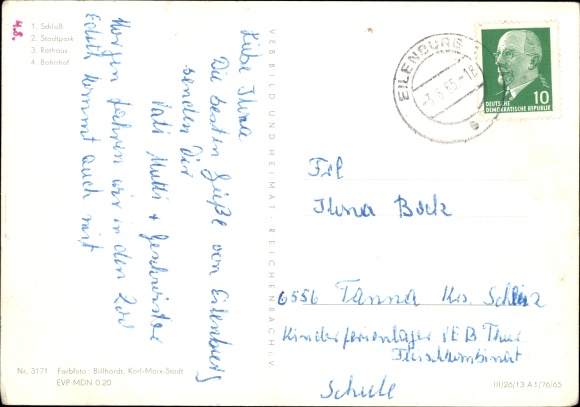 1. Schloß
2. Stadtpark
3. Rathaus
4. Bahnhof
4.8.
Liebe Ilona
Die besten Grüße von Eilenburg
senden Dir
Vati Mutti + Geschwister
Morgen fahren wir in den Zoo
Edith kommt auch mit
VEB BILD UND HEIMAT · REICHENBACH i. V.
EILENBURG
DEUTSCHE
DEMOKRATISCHE REPUBLIK
10
Frl
Ilona Bock
6556 Tanna Krs. Schleiz
Kinderferienlager VEB Thür
Fleischkombinat
Schule
Nr. 3171 Farbfoto: Billhardt, Karl-Marx-Stadt
EVP MDN 0.20
III/26/13 A 1/76/65